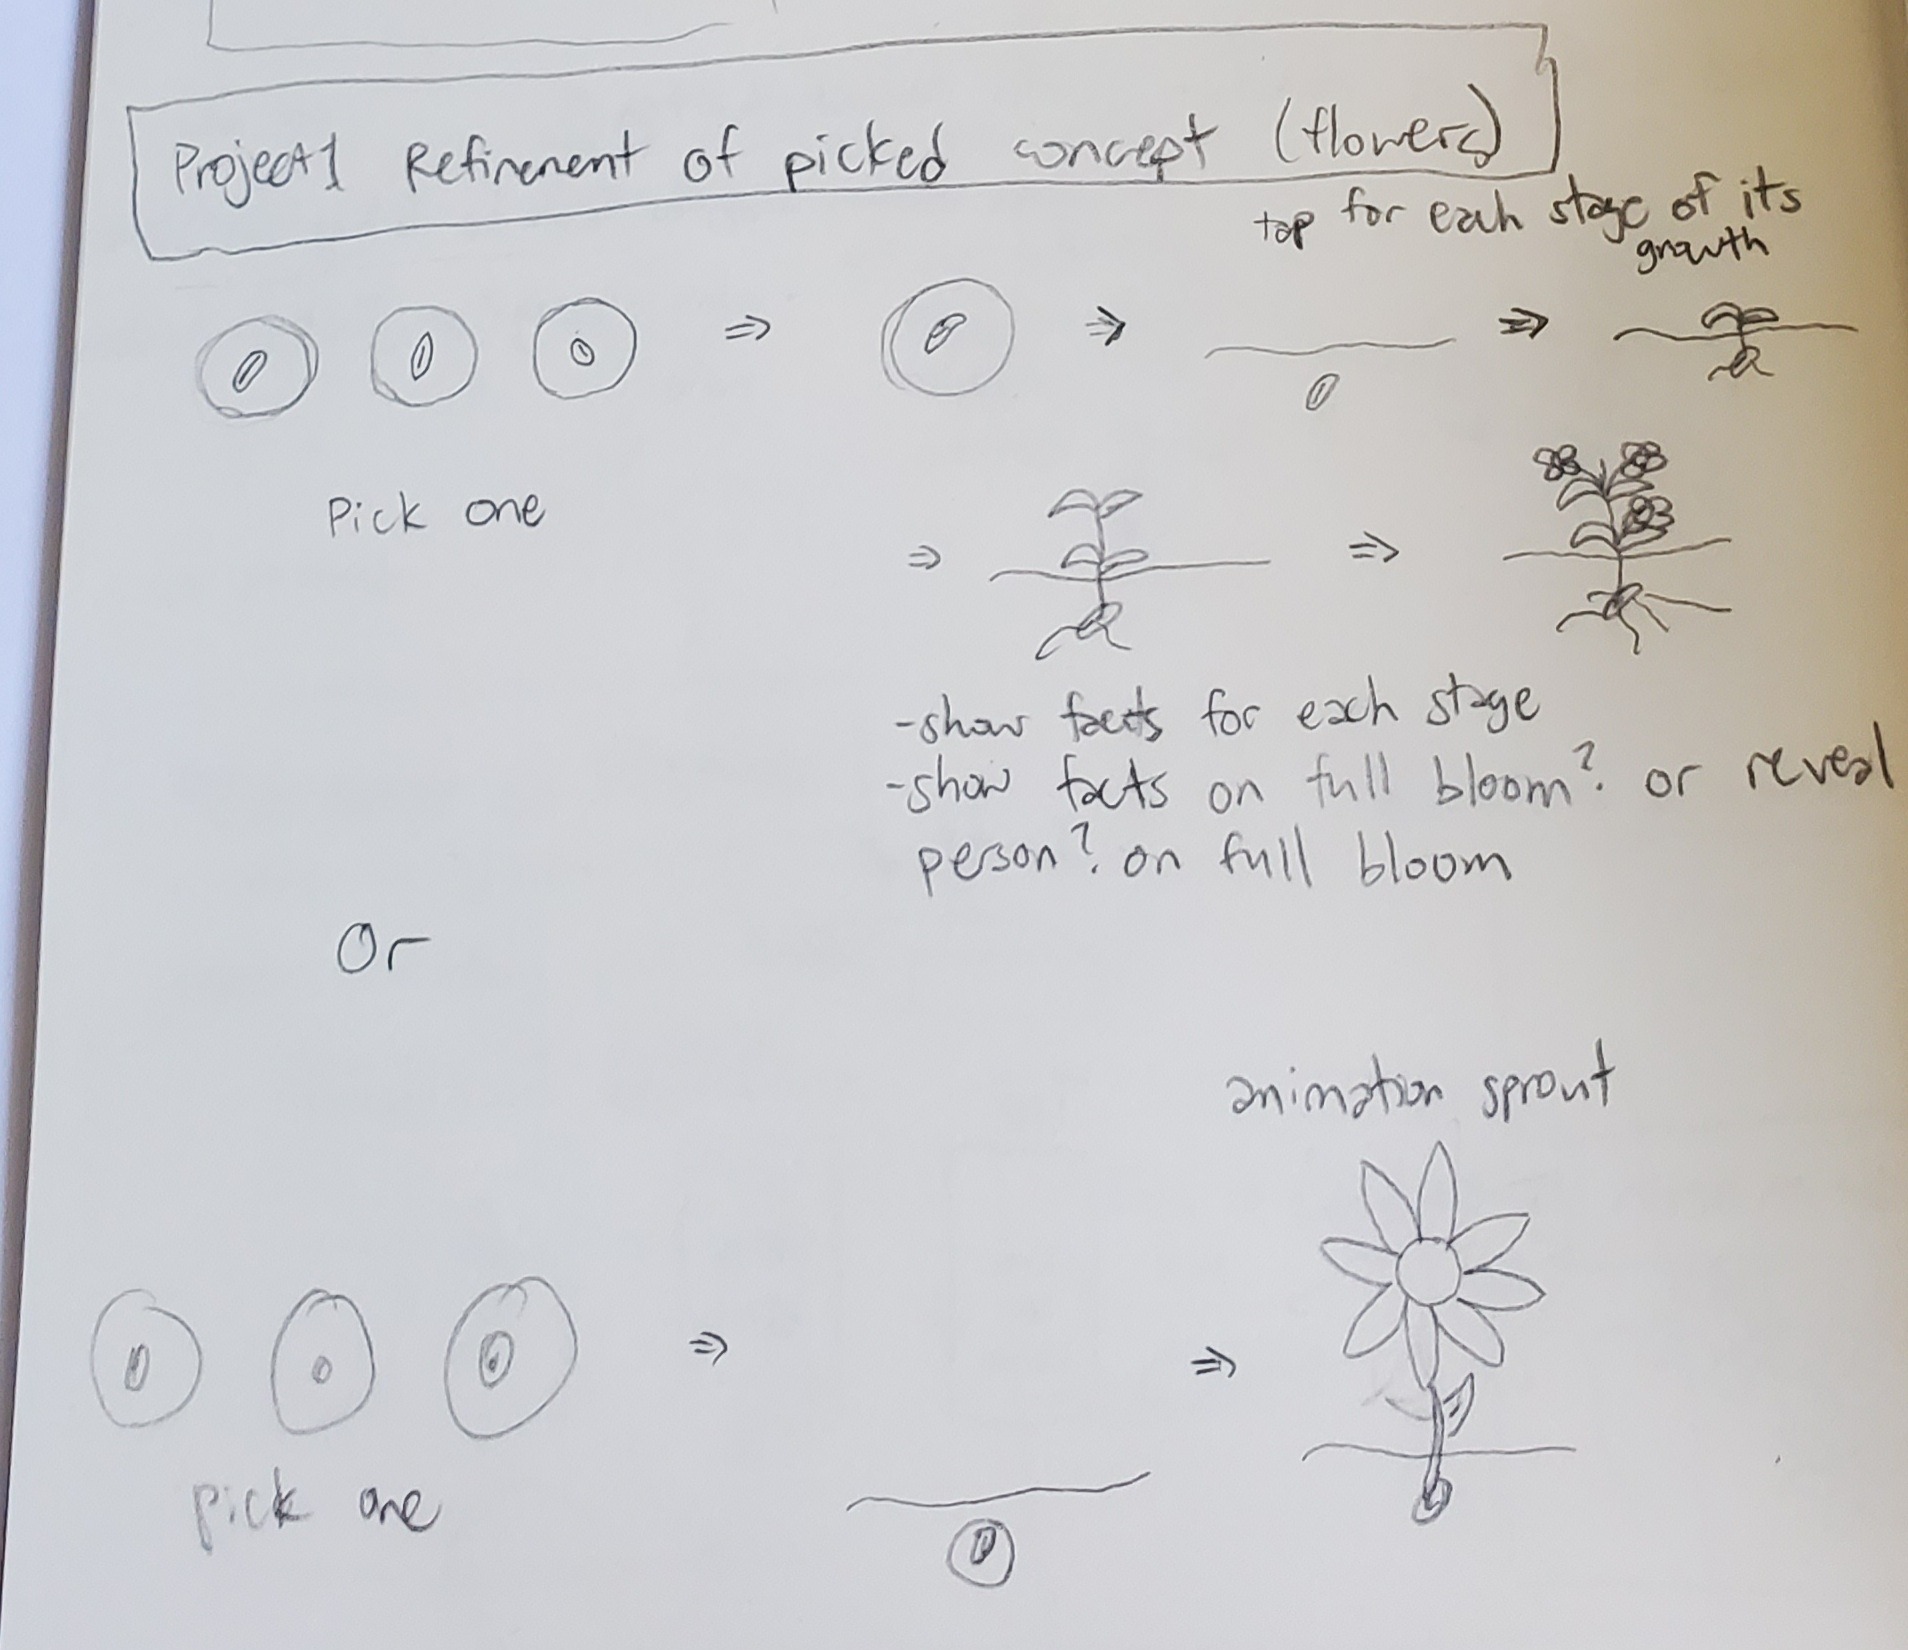 Project 1 Refinement of picked concept (flowers)
tap for each stage of its
growth
Pick one
-show facts for each stage
-show facts on full bloom? or reveal
person? on full bloom
Or
animation sprout
pick one